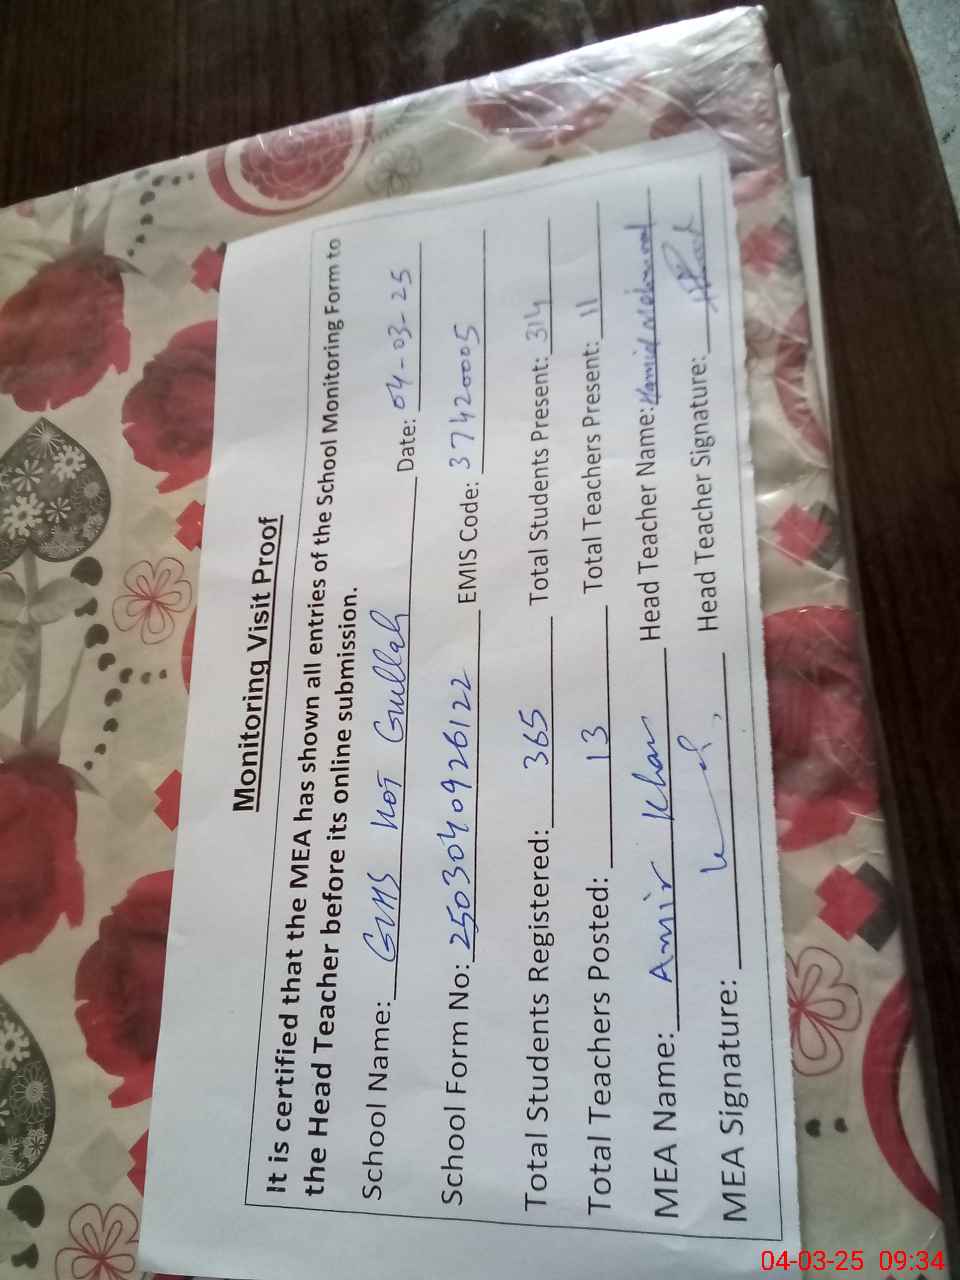 Monitoring Visit Proof
It is certified that the MEA has shown all entries of the School Monitoring Form to
the Head Teacher before its online submission.
School Name: GHS Kot Gullah Date: 04-03-25
School Form No: 2503040926122 EMIS Code: 37420005
Total Students Registered: 365 Total Students Present: 314
Total Teachers Posted: 13 Total Teachers Present: 11
MEA Name: Amir Khan Head Teacher Name: Hamid Mehmood
MEA Signature: Head Teacher Signature:
04-03-25 09:34